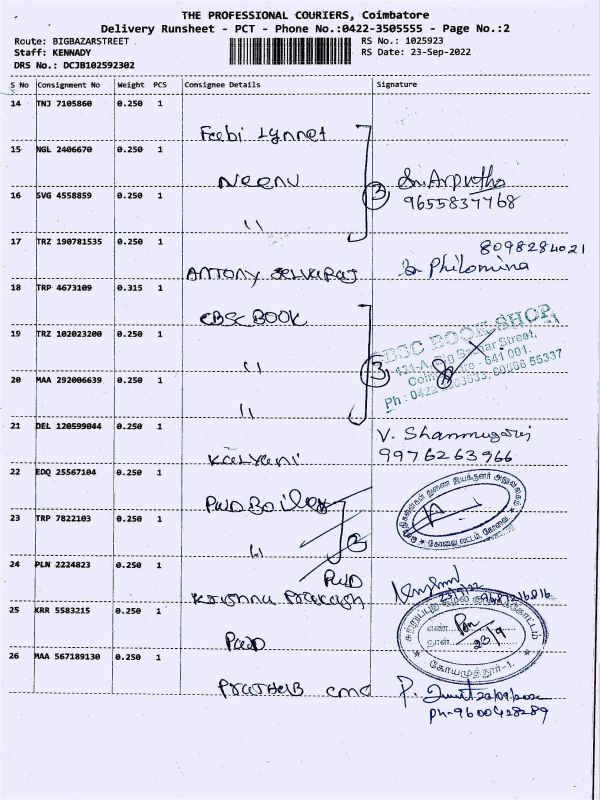 THE PROFESSIONAL COURIERS, Coimbatore
Delivery Runsheet - PCT - Phone No.:0422-3505555 - Page No.:2
Route: BIGBAZARSTREET RS No.: 1025923
Staff: KENNADY RS Date: 23-Sep-2022
DRS No.: DCJB102592302
S No Consignment No Weight PCS Consignee Details Signature
14 TNJ 7105860 0.250 1
Feebi Lynnet
15 NGL 2406670 0.250 1
Neenu
3
16 SVG 4558859 0.250 1
9655837768
17 TRZ 190781535 0.250 1
8098284021
ANTONY Selvaraj
Philomina
18 TRP 4673109 0.315 1
CBSC BOOK
CBSC BOOK SHOP,
19 TRZ 102023200 0.250 1
131-A, Big Bazaar Street,
3
641 001.
20 MAA 292006639 0.250 1
21 DEL 120599044 0.250 1
V. Shanmugaraj
Kalyani
9976263966
22 EDQ 25567104 0.250 1
23 TRP 7822103 0.250 1
24 PLN 2224823 0.250 1
PWD
Krishna Prakash
25 KRR 5583215 0.250 1
23/9
PWD
கோயமுத்தூர்-1.
26 MAA 567189130 0.250 1
Ph-9600428289